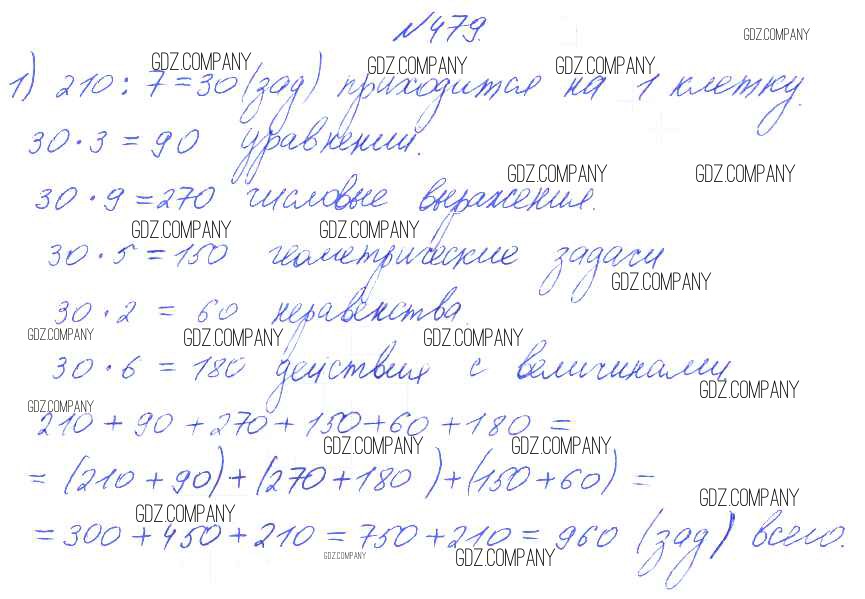 №479.
GDZ.COMPANY
GDZ.COMPANY GDZ.COMPANY GDZ.COMPANY
1) 210 : 7 = 30 (зад) приходится на 1 клетку.
30 · 3 = 90 уравнении.
GDZ.COMPANY GDZ.COMPANY
30 · 9 = 270 числовые выражения.
GDZ.COMPANY GDZ.COMPANY
30 · 5 = 150 геометрические задачи
GDZ.COMPANY
30 · 2 = 60 неравенства.
GDZ.COMPANY GDZ.COMPANY GDZ.COMPANY
30 · 6 = 180 действия с величинами
GDZ.COMPANY
GDZ.COMPANY
210 + 90 + 270 + 150 + 60 + 180 =
GDZ.COMPANY GDZ.COMPANY
= (210 + 90) + (270 + 180) + (150 + 60) =
GDZ.COMPANY
GDZ.COMPANY
= 300 + 450 + 210 = 750 + 210 = 960 (зад) всего.
GDZ.COMPANY GDZ.COMPANY